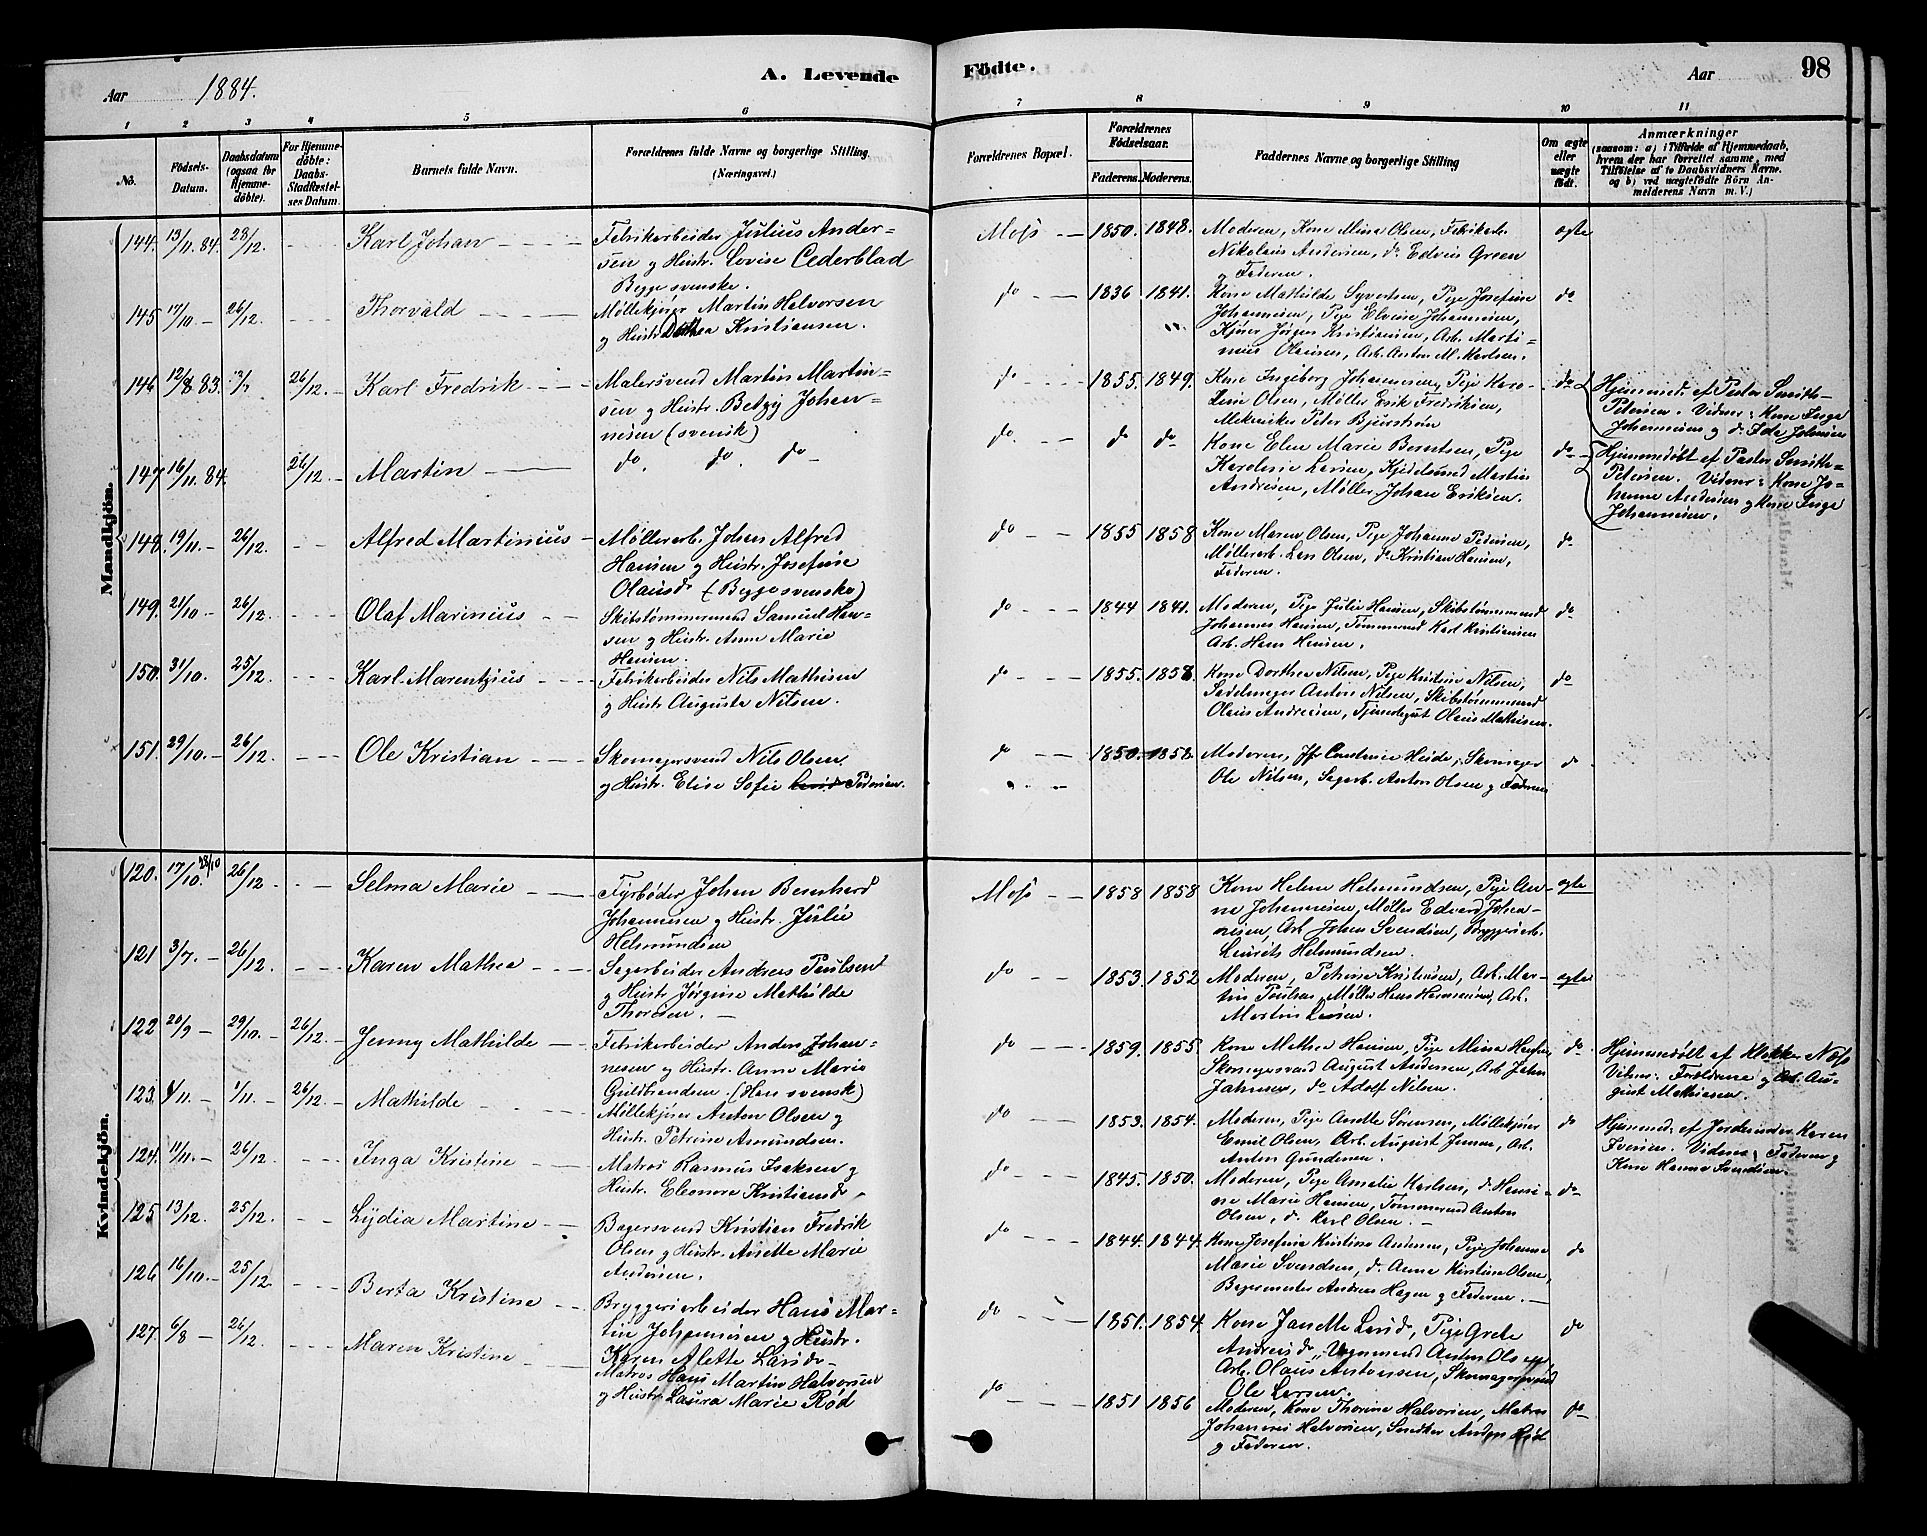 Aar 1884.
A. Levende
Födte.
Aar 98
1 2 3 4 5 6
7 8 9 10 11
No.
Födsels-
Datum.
Daabsdatum
(ogsaa for
Hjemme-
döbte).
For Hjemme-
döbte:
Daabs-
Stadfæstel-
ses Datum.
Barnets fulde Navn.
Forældrenes fulde Navne og borgerlige Stilling
(Næringsvei.)
Forældrenes Bopæl.
Forældrenes
Födselsaar.
Faderens. Moderens.
Faddernes Navne og borgerlige Stilling
Om ægte
eller
uægte
födt.
Anmærkninger
(saasom: a) i Tilfælde af Hjemmedaab,
hvem der har forrettet samme, med
Tilföielse af to Daabsvidners Navne.
og b) ved uægtefödte Börn An-
melderens Navn m. V.)
Mandkjön.
144. 13/11. 84. 28/12. Karl Johan
Fabrikarbeider Julius Ander-
sen og Hustr. Lovise Cederblad
Begge svenske.
Moss 1850. 1848.
Moderen, Kone Mina Olsen, Fabrikarb.
Nikolaus Andersen, do Edvin Green
og Faderen.
ægte
145 17/10 - 26/12. Thorvald
Møllekjører Martin Halvorsen
og Hustr Dothea Kristiansen.
do 1836 1841.
Kone Mathilde Syvertsen, Pige Josefine
Johannesen, Pige Elvine Johannesen,
Kjører Jørgen Kristiansen, Arb. Marti-
nius Olausen, Arb. Anton M. Karlsen.
do
146 12/8 83. 26/12. Karl Fredrik
Malersvend Martin Martin-
sen og Hustr. Betzy Johan-
nesen (svensk)
do 1855. 1849.
Kone Ingeborg Johannesen, Pige Karo-
line Olsen, Møller Erik Fredriksen,
Mekaniker Peter Bjurstrøm
do
Hjemmed. af Pastor Smith-
Petersen. Vidner: Kone Inga
Johannesen og do Ida Johnsen
147 16/11. 84. 26/12. Martin
do. do. do
do. do do
Kone Elen Marie Berntsen, Pige
Karoline Larsen, Kjedelsmed Martin
Andresen, Møller Johan Eriksen.
do
Hjemmedøbt af Pastor Smith-
Petersen. Vidner: Kone Jo-
hanne Andersen og Kone Inga
Johannesen.
148. 19/11. - 26/12. Alfred Martinius
Møllerarb. Johan Alfred
Hansen og Hustr. Josefine
Olausdr (Begge svenske)
do 1855 1858
Kone Maren Olsen, Pige Johanne Pedersen,
Møllerarb. Lars Olsen, do Kristian Hansen,
Faderen.
do
149. 21/10 - 26/12. Olaf Marinius
Skibstømmermand Samuel Han-
sen og Hustr. Anne Marie
Hansen.
do 1844 1841.
Moderen, Pige Julie Hansen, Skibstømmermand
Johannes Hansen, Tømmermd Karl Kristiansen
Arb. Hans Hansen.
do
150. 31/10. 25/12. Karl Marentzius
Fabrikarbeider Nils Mathisen
og Hustr Augusta Nilsen.
do 1855. 1858.
Kone Dorthea Nilsen, Pige Kristine Nilsen,
Sadelmager Anton Nilsen, Skibstømmermand
Olaus Andresen, Tjenestegut Olaus Mathisen.
do
151. 29/10. - 26/12. Ole Kristian
Skomagersvend Nils Olsen
og Hustr. Elise Sofie Pedersen.
do 1850. 1852.
Moderen, Jfr Constance Heide, Skomager
Ole Nilsen, Sagarb. Anton Olsen og Faderen
do
Kvindekjön.
120. 17/10. 28/10 26/12 Selma Marie
Fyrbøder Johan Bernhard
Johannesen og Hustr. Julie
Helmundsen
Moss 1858 1858
Kone Helene Helmundsen, Pige An-
ne Johannesen, Møller Edvard Johan-
nesen, Arb Johan Svendsen, Bryggeriarb.
Laurits Helmundsen.
ægte
121 3/7. - 26/12. Karen Mathea
Sagarbeider Andreas Paulsen
og Hustr Jørgine Mathilde
Thorsen.
do 1853. 1852
Moderen, Petrine Kristensen, Arb. Mar-
tin Paulsen, Møller Hans Hermansen, Arb.
Morten Larsen.
ægte
122 20/9 - 29/10. - 26/12. Jenny Mathilde
Fabrikarbeider Anders Johan-
nesen og Hustr. Anne Marie
Guldbrandsen. (Han svensk)
do 1859. 1855.
Kone Mathea Hansen, Pige Mina Hansen,
Skomagersvend August Andersen, Arb Johan
Johnsen, do Adolf Nilsen.
do
Hjemmedøbt af Klokker Næss
Vidner: Forældrene og Arb. Au-
gust Mathiesen.
123. 1/11. - 1/11. - 26/12. Mathilde
Møllekjører Anton Olsen og
Hustr. Petrine Amundsen.
do 1853. 1854.
Moderen, Pige Anette Sørensen, Møllekjører
Emil Olsen, Arb. August Jensen, Arb.
Anton Gundersen.
do
Hjemmed. af Jordemoder Karen
Iversen. Vidner: Faderen og
Kone Hanna Svendsen.
124. 11/11. - 26/12. Inga Kristine
Matros Rasmus Isaksen og
Hustr. Eleonore Kristiansdr.
do 1845. 1850.
Moderen, Pige Amalie Karlsen, do Hansi-
ne Marie Hansen, Tømmermd Anton
Olsen, do. Karl Olsen.
do
125 13/12. 25/12. Lydia Martine
Bagersvend Kristian Fredrik
Olsen og Hustr. Anette Marie
Andersen.
do 1844. 1844.
Kone Josefine Kristine Andersen, Pige Johanne
Marie Svendsen, do. Anna Kirstine Olsen,
Bagermester Andreas Hagen og Faderen.
do
126 16/10. - 25/12. Berta Kristine
Bryggeriarbeider Hans Mar-
tin Johannesen og Hustr.
Karen Alette Larsdr
do 1851. 1854.
Kone Janette Larsd, Pige Grete
Andreisdr, Vognmand Anton Olsen
Arb. Olaus Antonsen, Skomagersvend
Ole Larsen.
do
127. 6/8 - 26/12. Maren Kristine
Matros Hans Martin Halvorsen
og Hustr. Laura Marie Rød
do 1851 1856
Moderen, Kone Thorine Halvorsen, Matros
Johannes Halvorsen, Snedker Anders Rød
og Faderen.
do